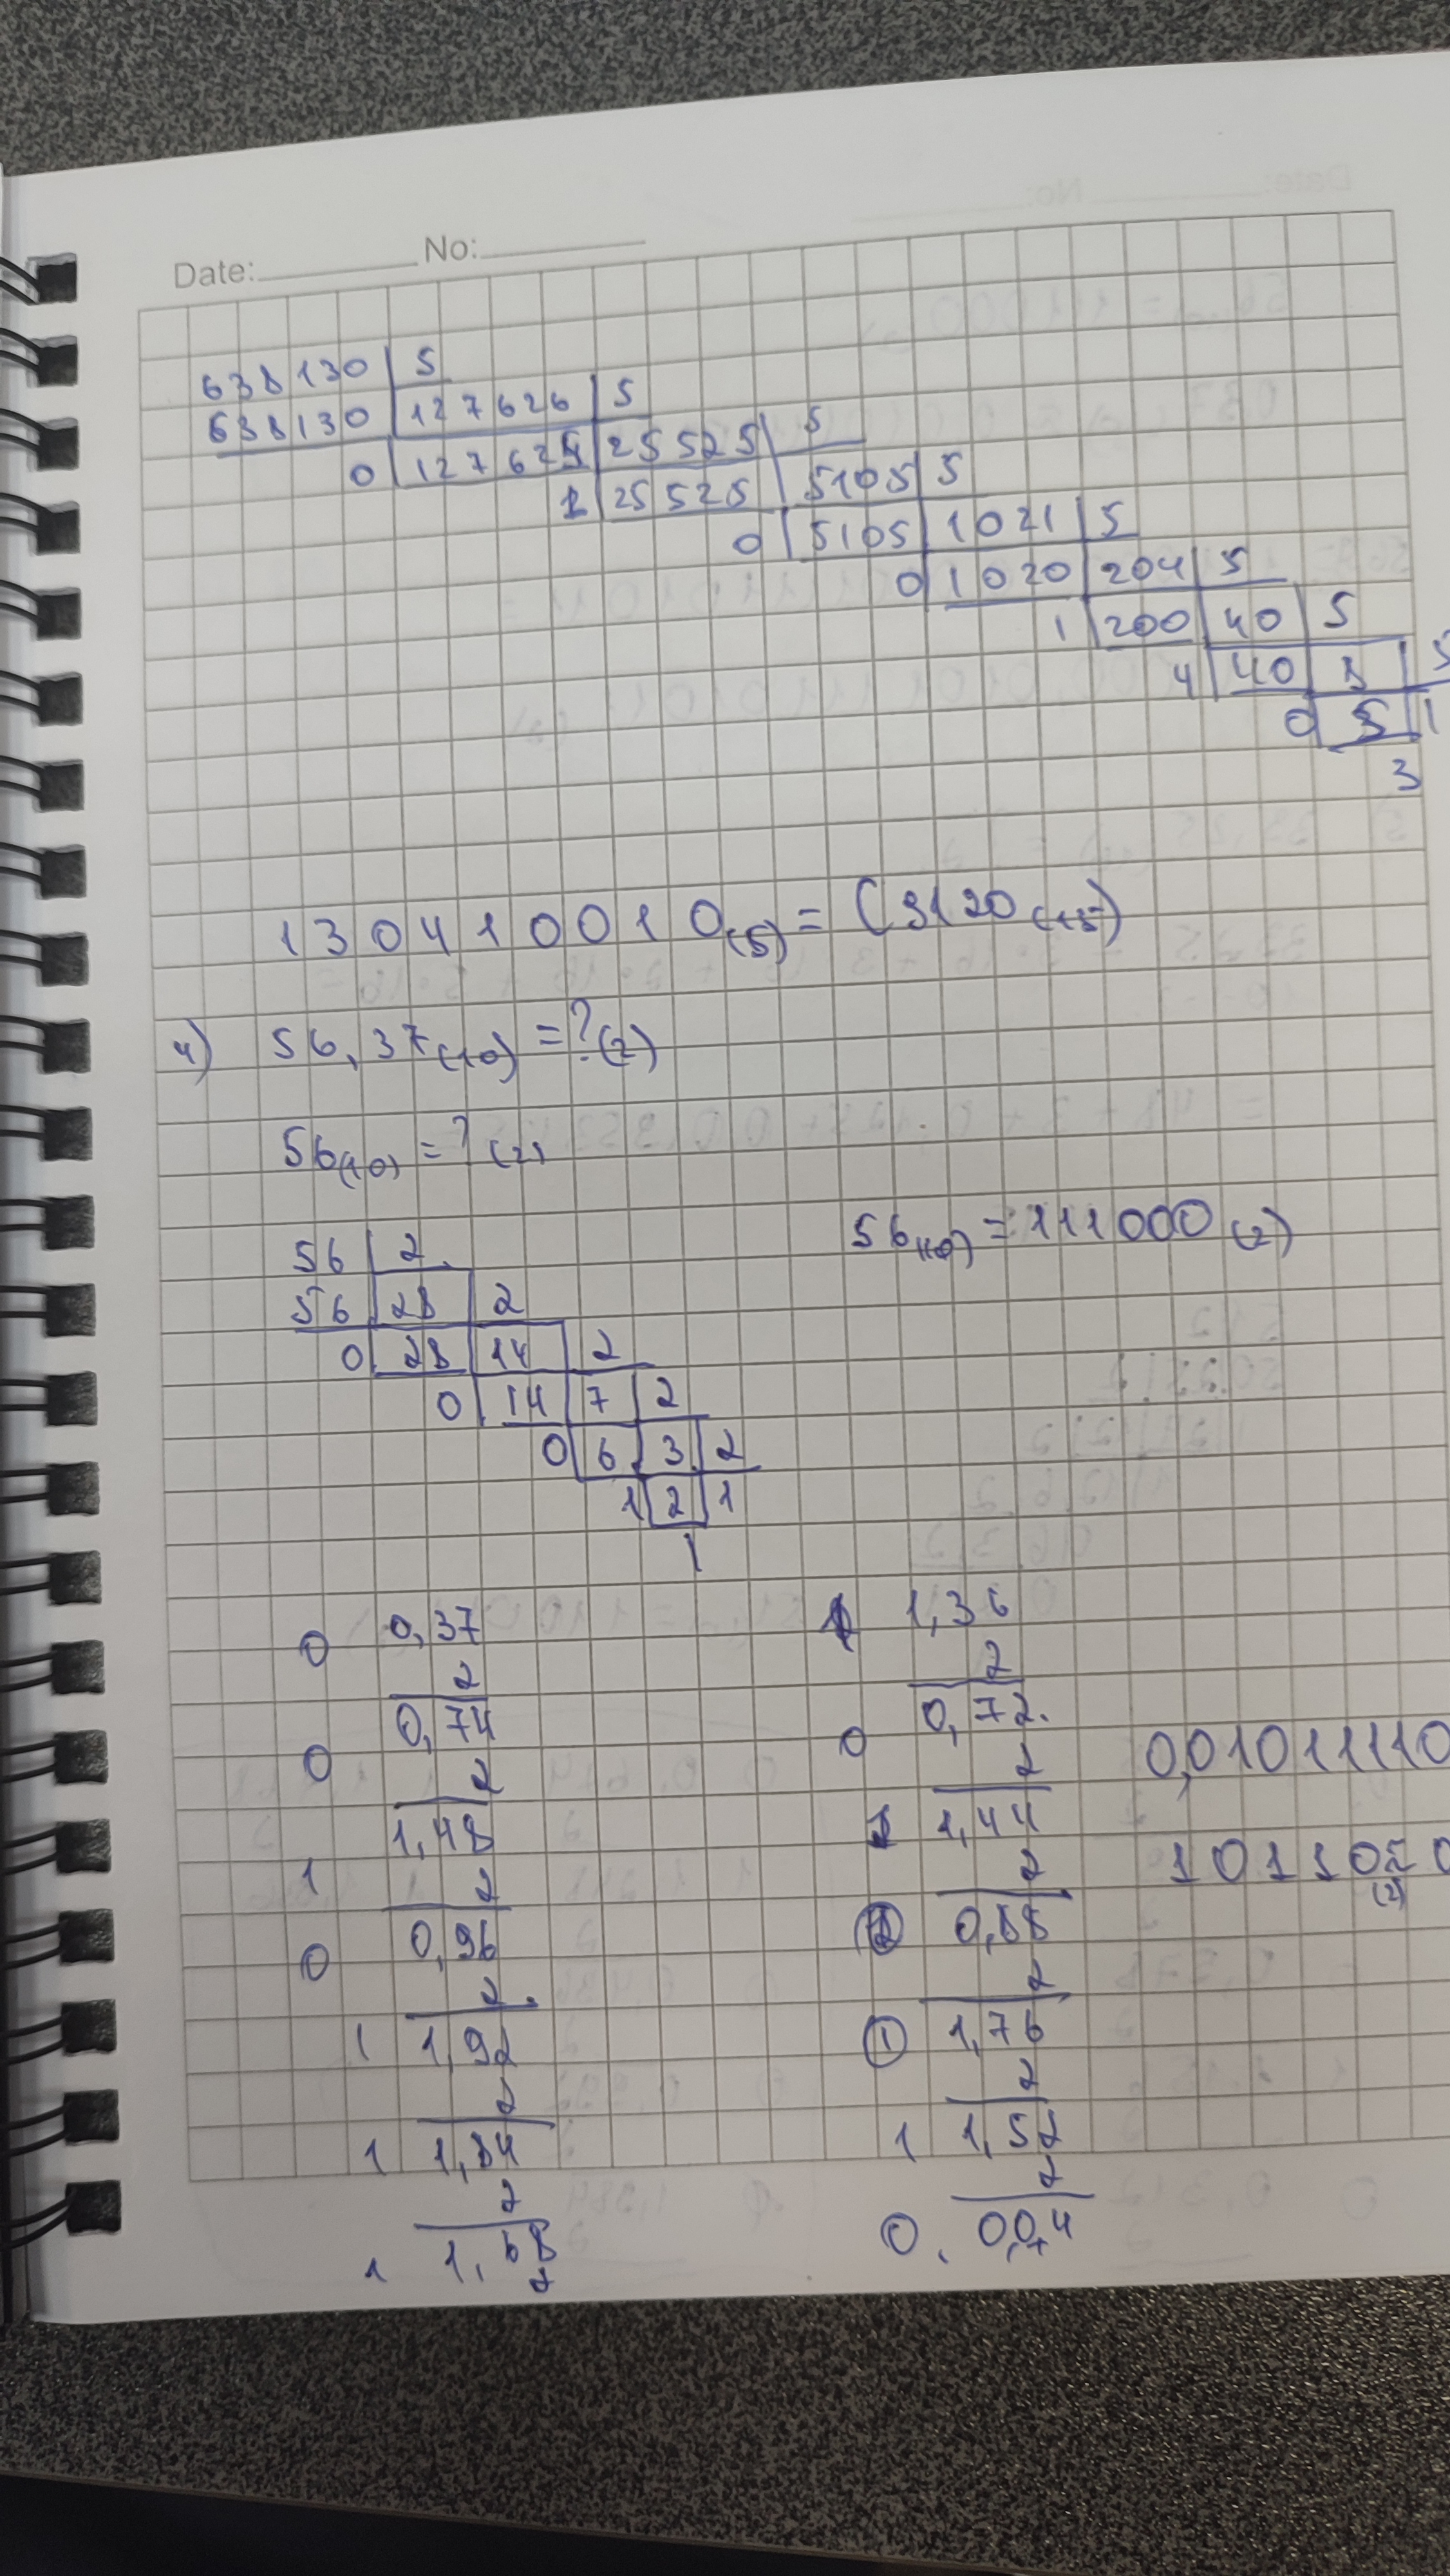 Date: No:
638130 | 5
638130 | 127626 | 5
0 | 127625 | 25525 | 5
1 | 25525 | 5105 | 5
0 | 5105 | 1021 | 5
0 | 1020 | 204 | 5
1 | 200 | 40 | 5
4 | 40 | 8 | 5
0 | 5 | 1
3
130410010(5) = (3120(15)
4) 56,37(10) = ?(2)
56(10) = ?(2)
56(10) = 111000(2)
56 | 2
56 | 28 | 2
0 | 28 | 14 | 2
0 | 14 | 7 | 2
0 | 6 | 3 | 2
1 | 2 | 1
1
0 0,37
2
0 0,74
2
1 1,48
2
0 0,96
2
1 1,92
2
1 1,84
2
1 1,68
2
1,36
2
0 0,72
2
1 1,44
2
0,88
2
1 1,76
2
1 1,52
2
0. 0,04
0,01011110
101102 0
(2)